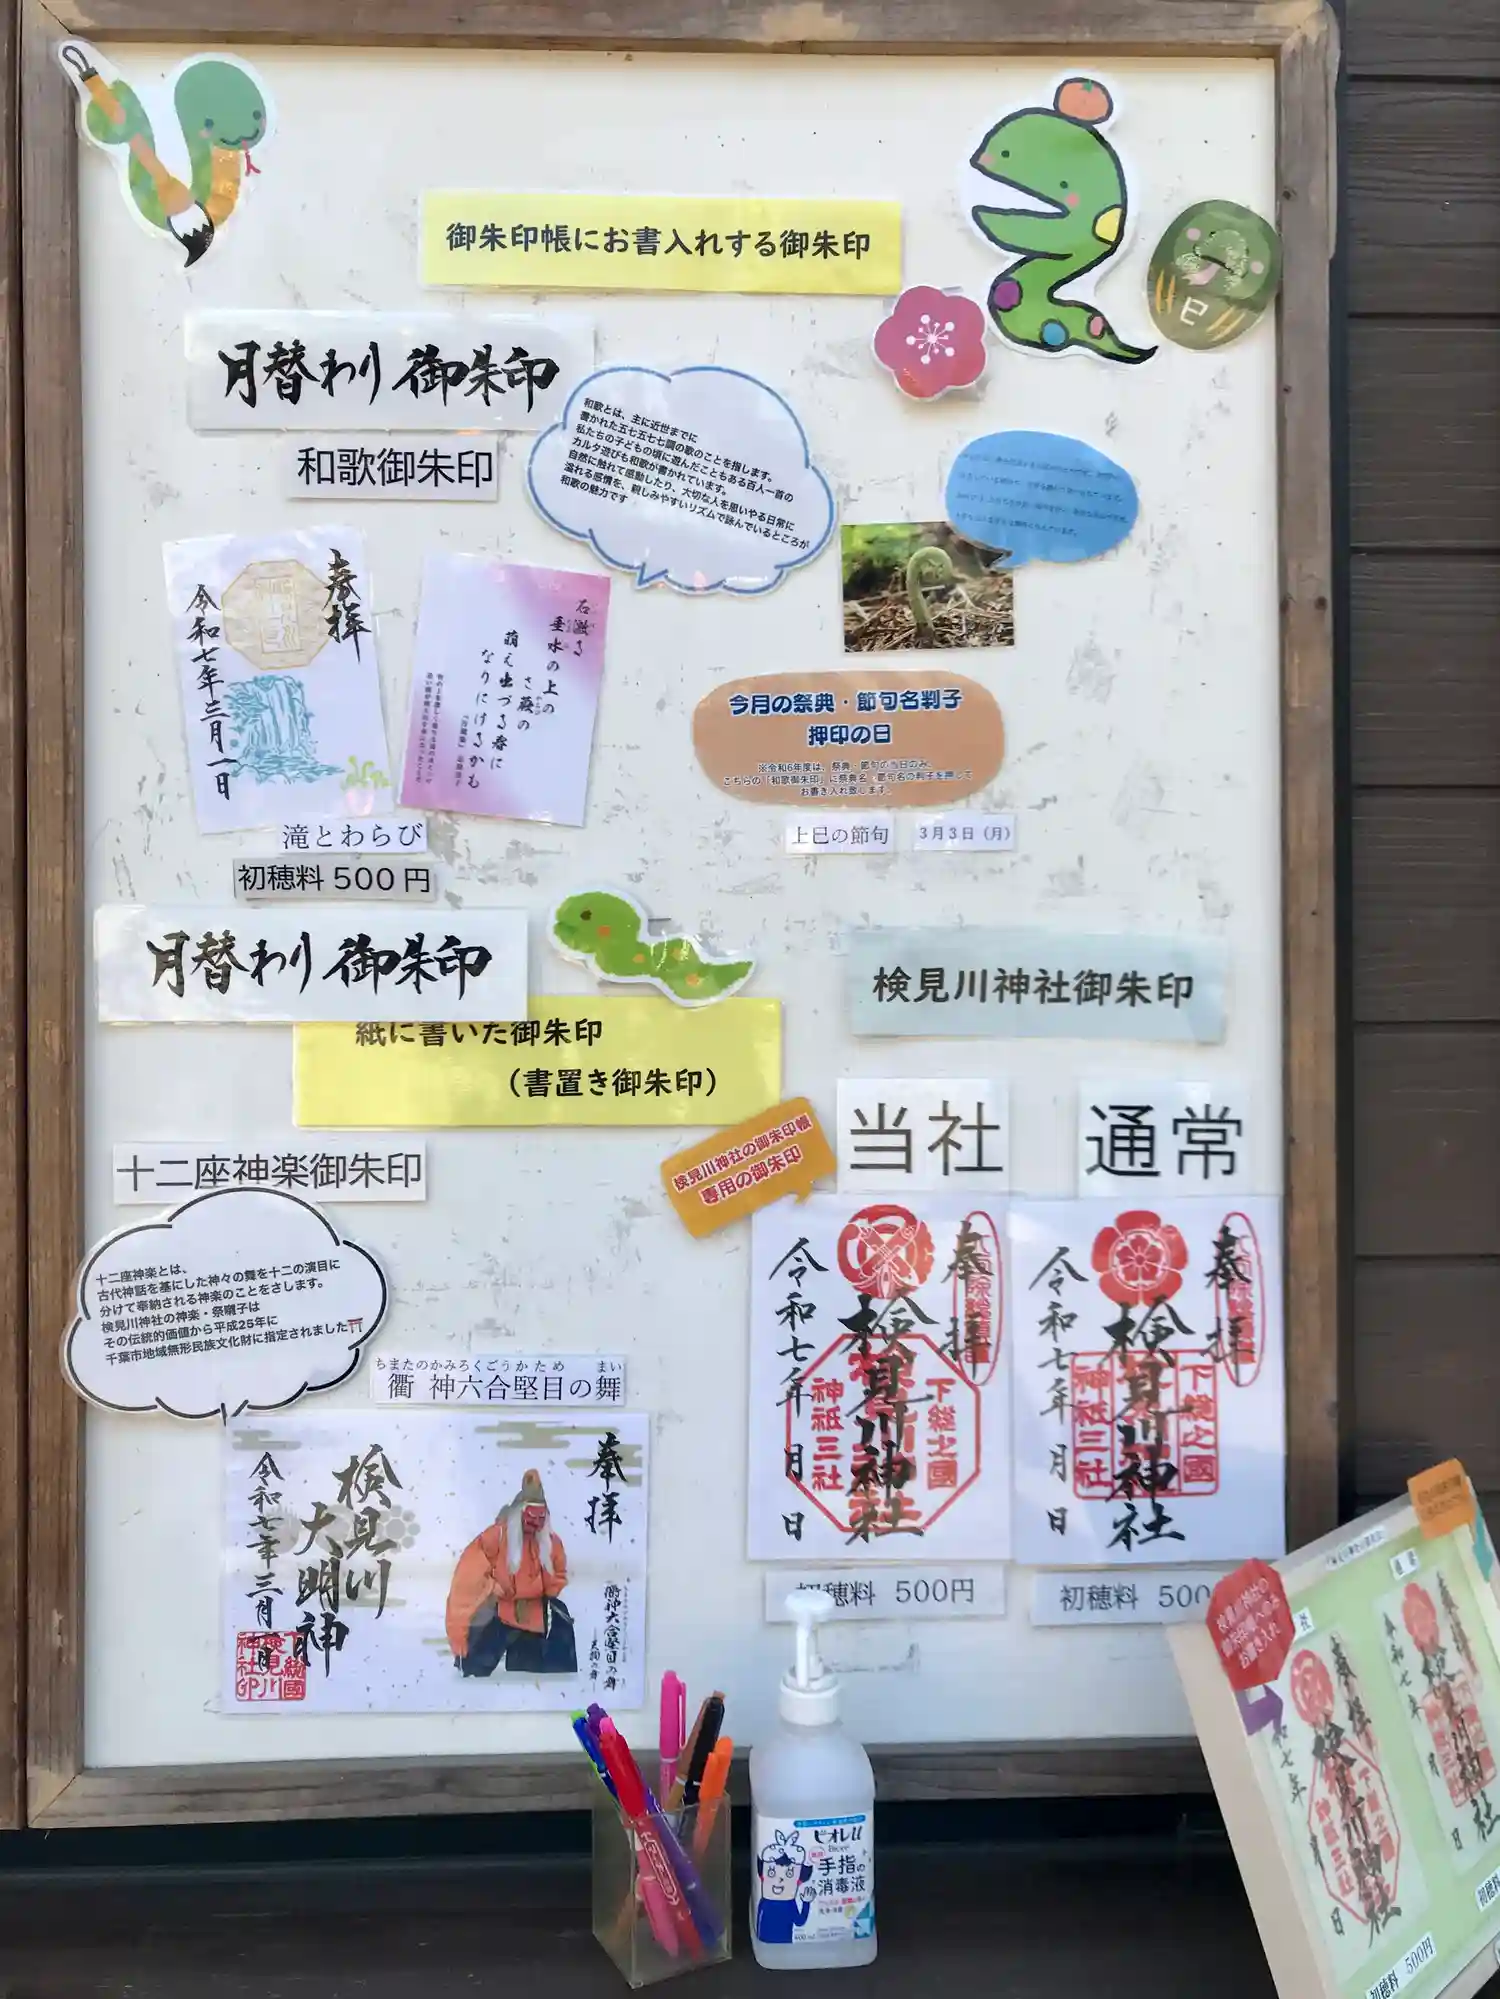 御朱印帳にお書入れする御朱印
巳
月替わり御朱印
和歌御朱印
和歌とは、主に近世までに
書かれた五七五七七調の歌のことを指します。
私たちの子どもの頃に遊んだこともある百人一首の
カルタ遊びも和歌が書かれています。
自然に触れて感動したり、大切な人を思いやる日常に
溢れる感情を、親しみやすいリズムで詠んでいるところが
和歌の魅力です
奉拝
令和七年三月一日
石激る
垂水の上の
さ蕨の
萌え出づる春に
なりにけるかも
滝とわらび
初穂料500円
今月の祭典・節句名判子
押印の日
※令和6年度は、祭典・節句の当日のみ、
こちらの「和歌御朱印」に祭典名・節句名の判子を押して
お書き入れ致します。
上巳の節句
3月3日(月)
月替わり御朱印
紙に書いた御朱印
(書置き御朱印)
十二座神楽御朱印
十二座神楽とは、
古代神話を基にした神々の舞を十二の演目に
分けて奉納される神楽のことをさします。
検見川神社の神楽・祭囃子は
その伝統的価値から平成25年に
千葉市地域無形民族文化財に指定されました
ちまたのかみろくごうかため まい
衢 神六合堅目の舞
奉拝
検見川
大明神
令和七年三月一日
下総國
検見川
神社印
衢神六合堅目の舞
検見川神社御朱印
検見川神社の御朱印帳
専用の御朱印
当社
奉拝
検見川神社
下総之國
神祇三社
令和七年 月 日
初穂料 500円
通常
奉拝
検見川神社
下総之國
神祇三社
令和七年 月 日
初穂料 500
ビオレu
Bioré
手指の
消毒液
検見川神社の
御朱印帳へのみ
お書き入れ
通常
奉拝
検見川神社
神祇三社
月 日
初穂料 500円
初穂料